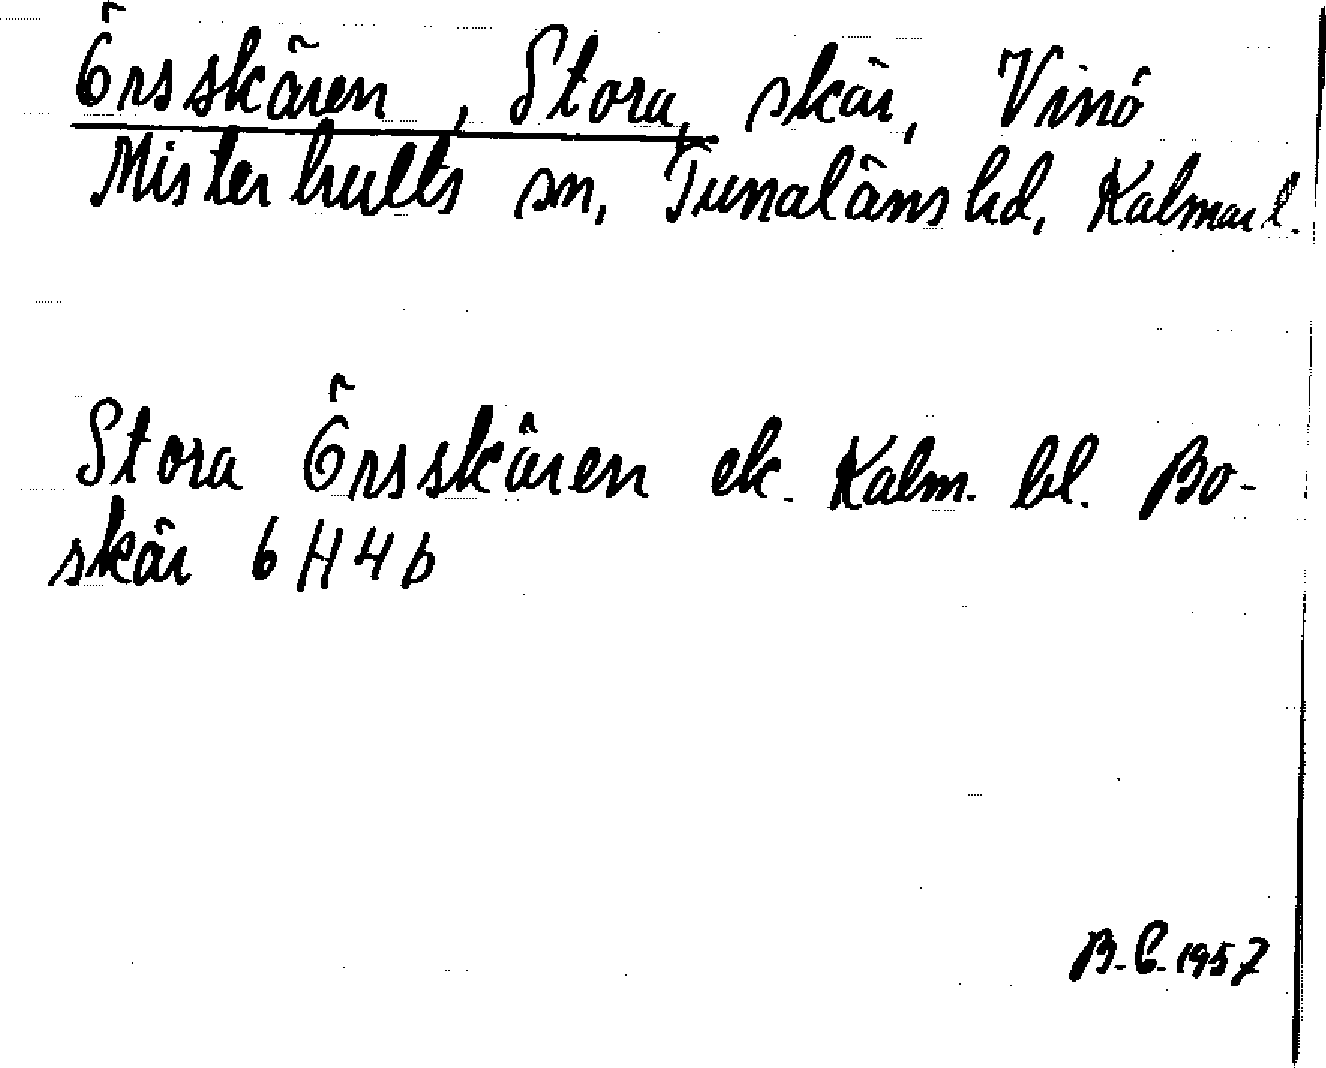 Örsskären, Stora, skär, Vinö
Misterhults sn, Tunaläns hd, Kalmar l.
Stora Örsskären ek. Kalm. bl. Bo-
skär 6 H 4 b
B. E. 1957